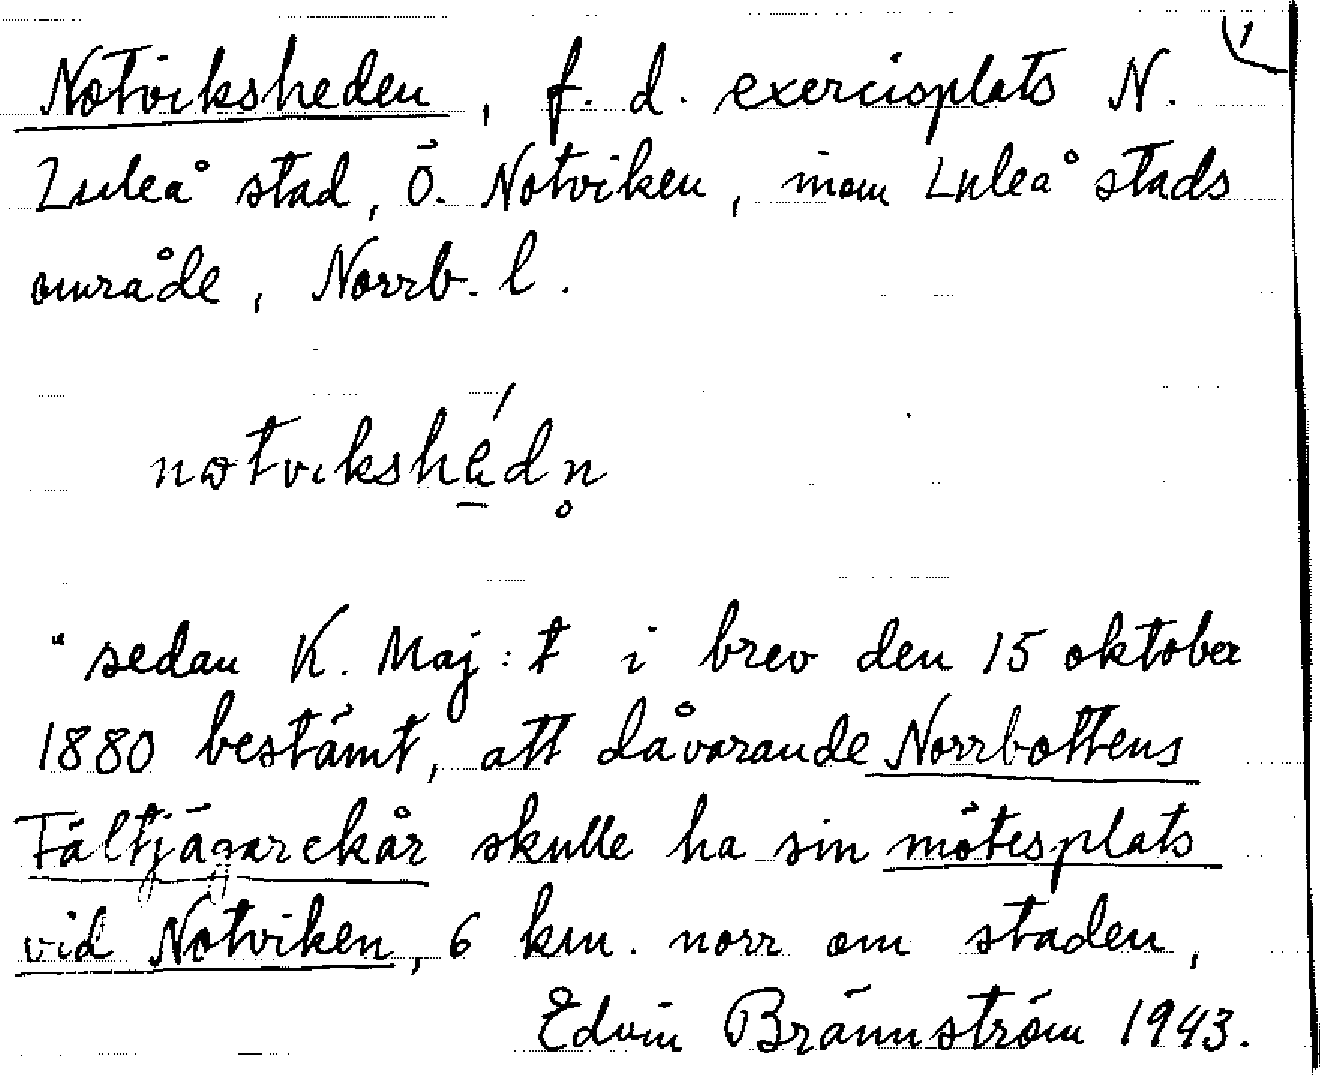 1
Notviksheden, f. d. exercisplats N.
Luleå stad, Ö. Notviken, inom Luleå stads
område, Norrb. l.
notvikshédn̥
"sedan K. Maj:t i brev den 15 oktober
1880 bestämt, att dåvarande Norrbottens
Fältjägarekår skulle ha sin mötesplats
vid Notviken, 6 km. norr om staden,
Edvin Brännström 1943.